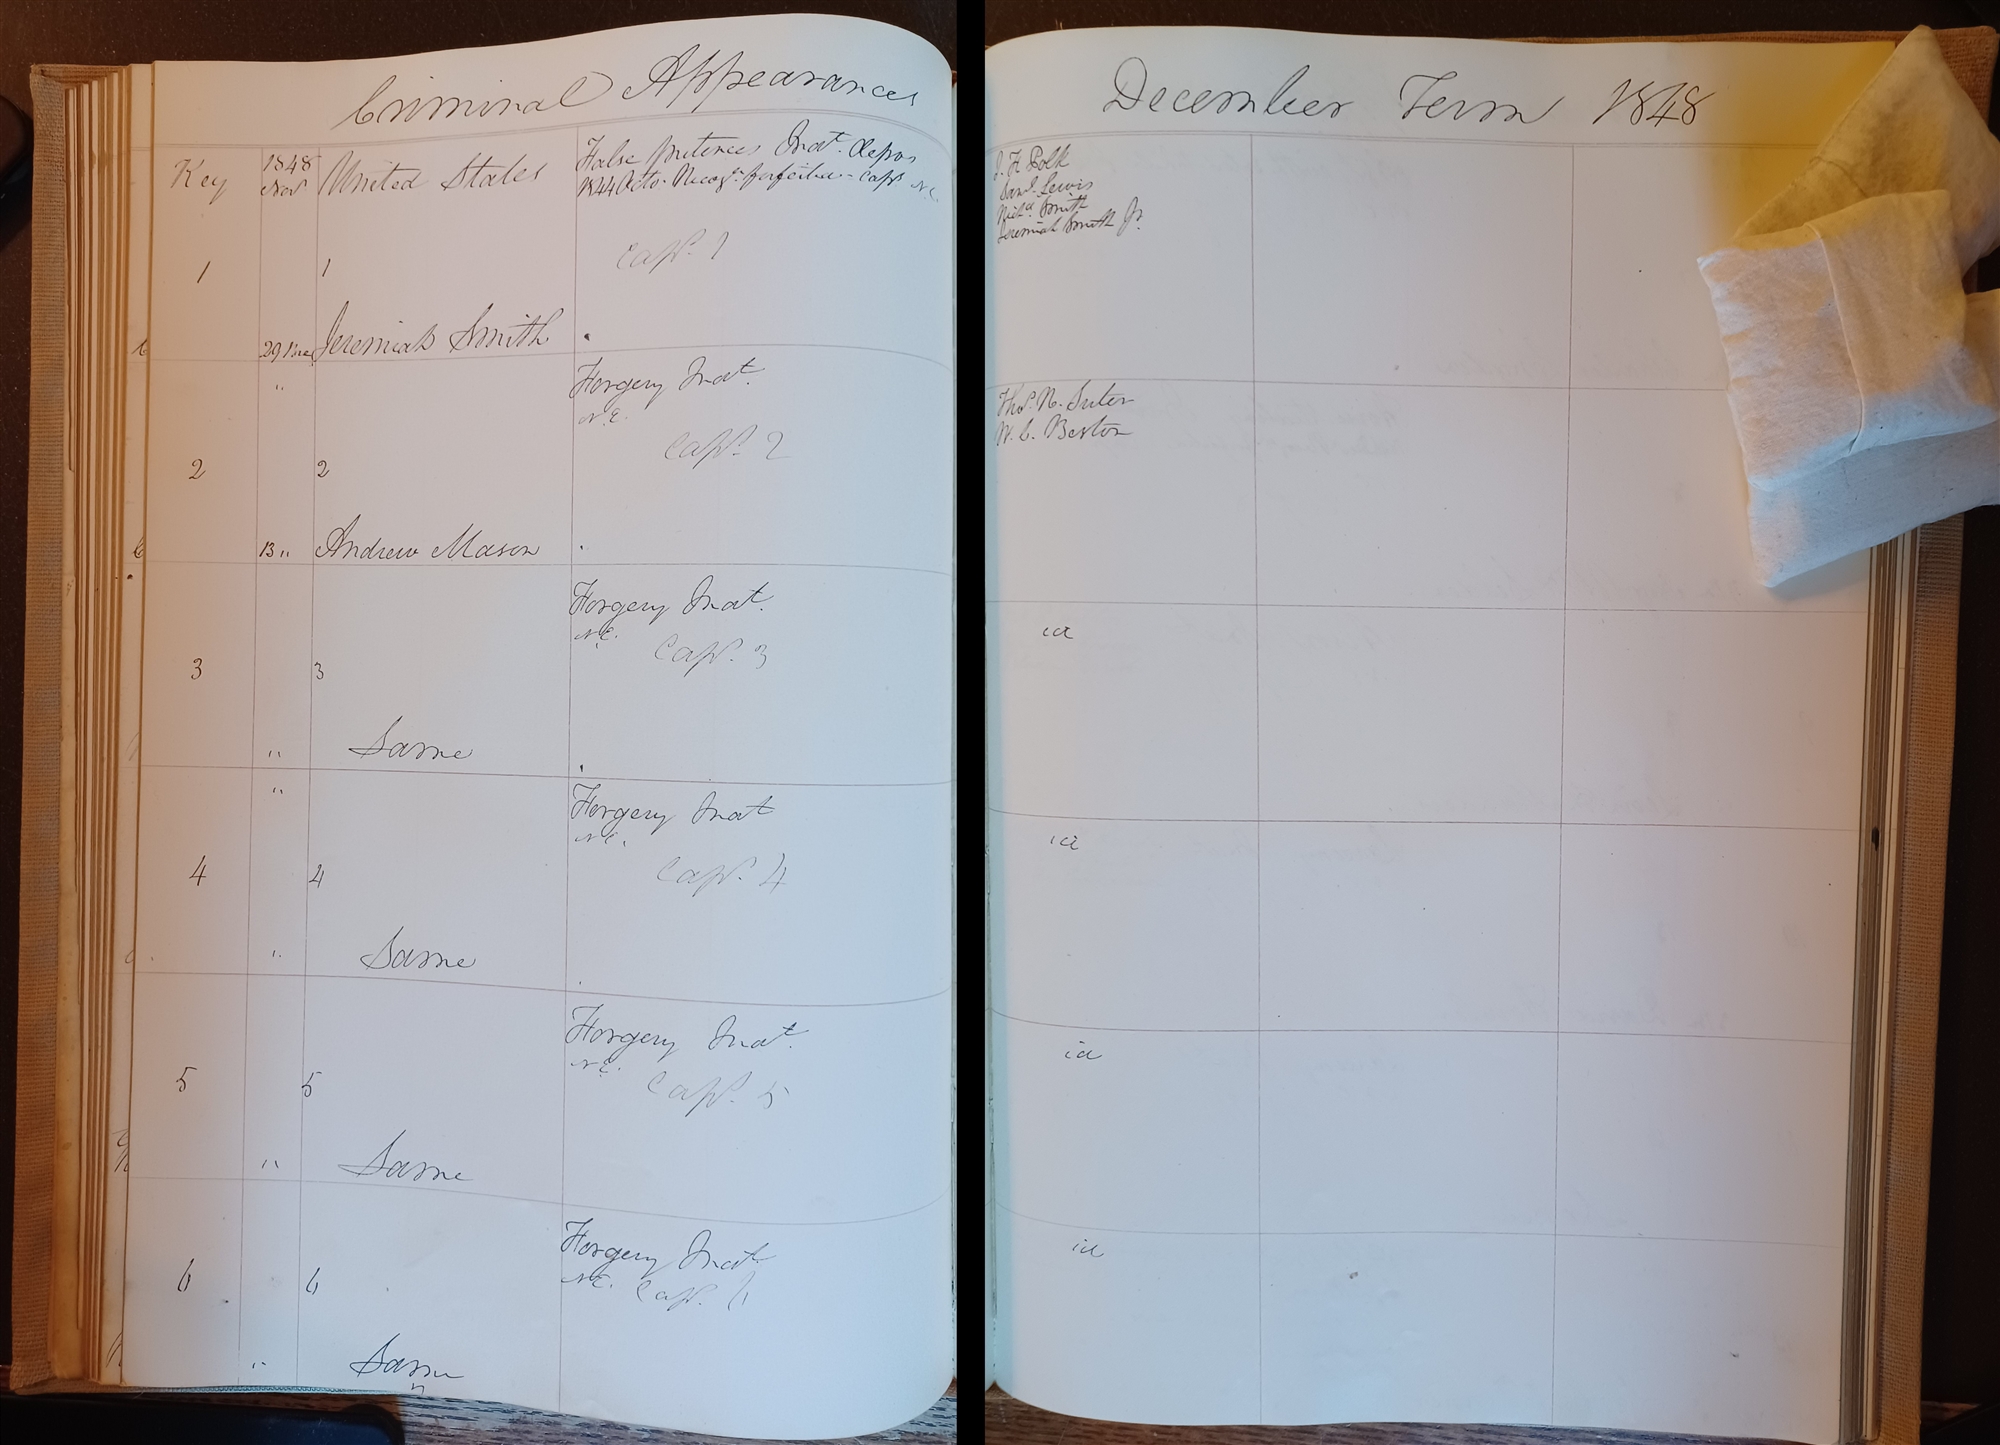 Criminal Appearances
Key
1848
Nov
United States
False pretences Indt. depos
1844 Octo. Recogs. forfeited - Cap N.E.
1
1
Cap. 1
29
Jeremiah Smith
"
Forgery Indt.
N.E.
Cap. 2
2
2
13 "
Andrew Mason
Forgery Indt.
N.E.
Cap. 3
3
3
"
Same
"
Forgery Indt
N.E.
Cap. 4
4
4
"
Same
Forgery Indt.
N.E.
Cap. 5
5
5
"
Same
Forgery Indt
N.E. Cap. 6
6
6
"
Same
December Term 1848
J. K Polk
Saml. Lewis
Smith
Jeremiah Smith Jr.
Thos. N. Suter
W. C. Bestor
id
id
id
id